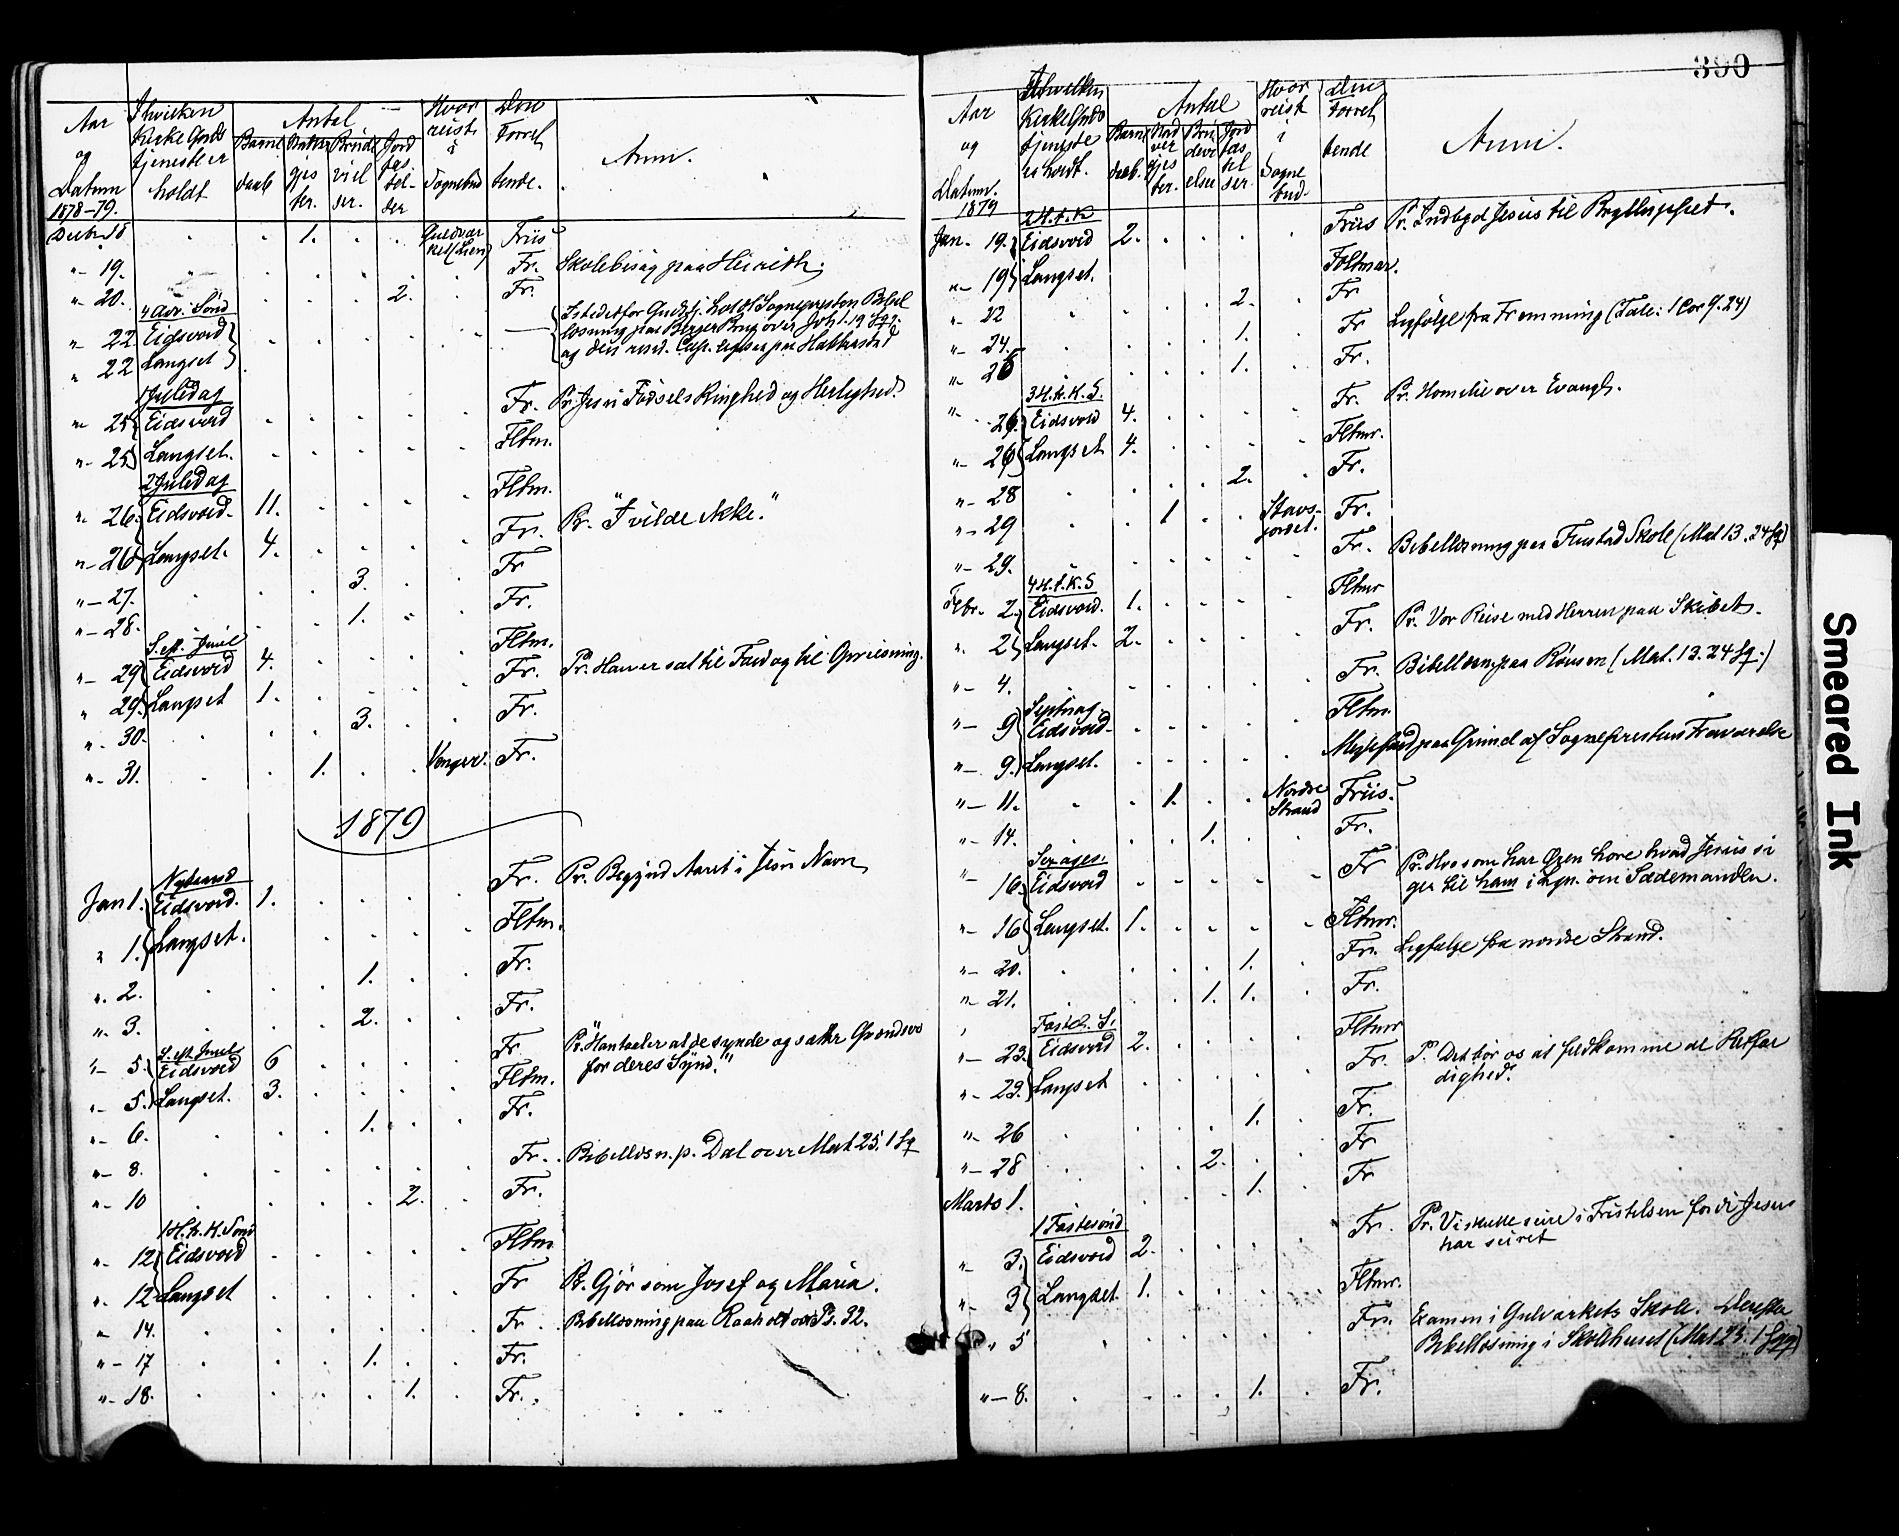 390
Aar og Datum 1878-79. | I hvilken Kirke Gudstjeneste er holdt | Antal | Hvor reist i Sognebud | Den Forret tende. | Anm.
Barne daab | Brude viel ser. | Jord fæs tel ser
Decbr 18 . . 1. . . Guldvær ket (Lien) Friis
"- 19. Fr. Skolebesøg paa
"- 20. . . . . 2. . Fr.
4 Adv. Sønd
"- 22 Eidsvold Istedetfor Gudstj. holdt Sognepresten Bibel
læsning paa over Joh 1.19 fgg.
" 22 Langset og den resid. Cap. ligesaa paa
Juledag
"- 25 Eidsvold Fr. Pr. Jesu Fødsels Ringhed og Herlighed.
"- 25 Langset. Fltm.
2 Juledag
"- 26. Eidsvold. 11. Fltm.
"- 26 Langset. 4. Fr. Pr. "I vilde ikke."
"- 27. 3. Fr
"- 28. 1. Fr.
S. eft. Juul
"- 29 Eidsvold 4. Fltm.
" 29. Langset 1. Fr. Pr. Han er sat til Fald og til Opreisning.
"- 30. 3. Fr.
"- 31. 1. Fr.
1879
Nytaarsd
Jan 1. Eidsvold. 1. Fr. Pr. Begynd Aaret i Jesu Navn
" 1. Langset. Fltm.
". 2. 1. Fr.
". 3. 2. Fr.
"- 5. Eidsvold 6 Fr Pr. "Han taaler at de synde og sætter Grændser
for deres Synd."
"- 5. Langset. 3. Fltm.
"- 6. 1. Fr.
"- 8. Fr. Bibellæsn. p. Dal over Mat 25. 1 fg
"- 10 2. Fr.
1 H. t. K. Sønd
"- 12 Eidsvold Fltm
"- 12 Langset Fr Pr. Gjør som Josef og Maria.
" 14. Fr. Bibellæsning paa Raaholt over Ps. 32.
"- 17 1. Fr.
"- 18. 1. Fr.
Aar og Datum. 1879 | I hvilken Kirke Gudstjeneste er holdt. | Antal | Hvor reist i Sogne bud. | Den Forret tende | Anm.
Barne daab. | Nad ver gjes ter. | Jord fæs tel ser.
2 H. t. K
Jan. 19. Eidsvold 2. Friis Pr. Indbyd Jesus til Bryllupsfest.
"- 19 Langset. Foltmar.
"- 22 2. Fr
"- 24. 1. Fr Ligfølge fra (Tale: 1 Cor 9.24)
"- 25 1. Fr.
3 H. t. K. S.
"- 26. Eidsvold 4. Fr. Pr. Homilie over Evangl.
"- 26 Langset 4. Fltmr.
"- 28 2. Fr.
"- 29 1 Fr.
"- 29. Fr. Bibellæsning paa Skole (Mat 13. 24 fg)
4 H. t. K. S
Febr. 2. Eidsvold. 1. Fltmr
" 2 Langset. 2. Fr. Pr. Vor Reise med Herren paa Skibet.
"- 4. Fr. Bibellæsn. paa (Mat. 13. 24 fg.)
Septuag.
"- 9 Eidsvold Fltm.
"- 9. Langset. Messefald paa Grund af Sognepresten Fraværelse
"- 11. 1. Nordre Strand Friis.
"- 14. 1. Fr.
Sexages:
"- 16. Eidsvold Fr Pr. Hvo som har Øren høre hvad Jesus si
ger til ham i Lign. om Sædemanden.
"- 16 Langset. 1. Fltmr.
"- 20. 1. Fr. Ligfølge fra nordre Strand.
"- 21. 1. 1. Fr.
Fastel. S.
"- 23. Eidsvold 2. Fltmr
"- 23. Langset Fr. P. Det bør os at fuldkomme al Retfær
dighed.
"- 26 1. Fr.
"- 28 2. Fr
Marts 1. 1. Fr
1 Fastesønd
"- 3. Eidsvold 2. Fr. Pr. Vi skulle seire i Fristelsen fordi Jesus
har seiret
"- 3 Langset. 1. Fltmr.
" 5 Fr. Examen i Gulværkets Skole. Derefter
Bibellæsning i Skolehuset (Mat 25. 1 fgg)
"- 8. 1. Fr.
Smeared Ink